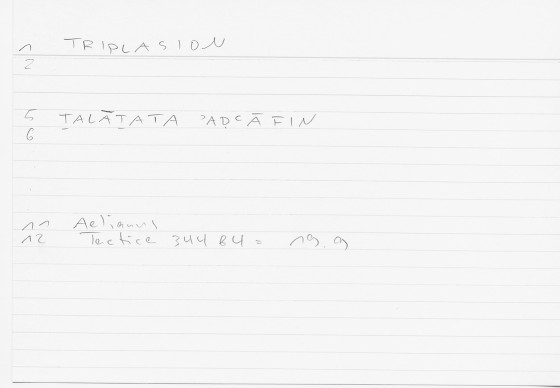 1 TRIPLASION
2
5 ṮALĀṮATA ʾAḌʿĀFIN
6
11 Aelianus
12 Tactice 344 B4 = 19.9